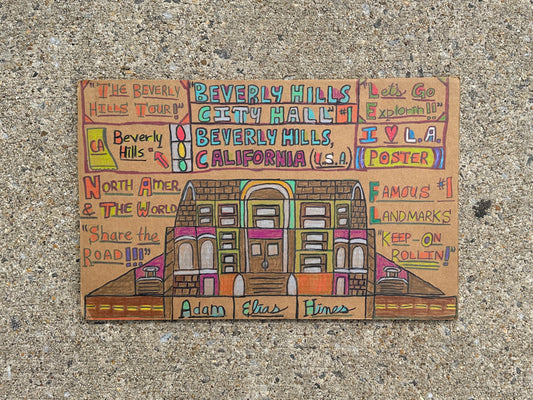 "THE BEVERLY
HILLS TOUR!"
"BEVERLY HILLS
CITY HALL" #1
BEVERLY HILLS,
CALIFORNIA (U.S.A.)
"LET'S GO
EXPLORIN!!"
CA
Beverly
Hills
I ♥ L.A.
POSTER
NORTH AMER.
& THE WORLD
FAMOUS #1
LANDMARKS
"Share the
ROAD!!!"
"KEEP-ON
ROLLIN!"
Adam Elias Hines